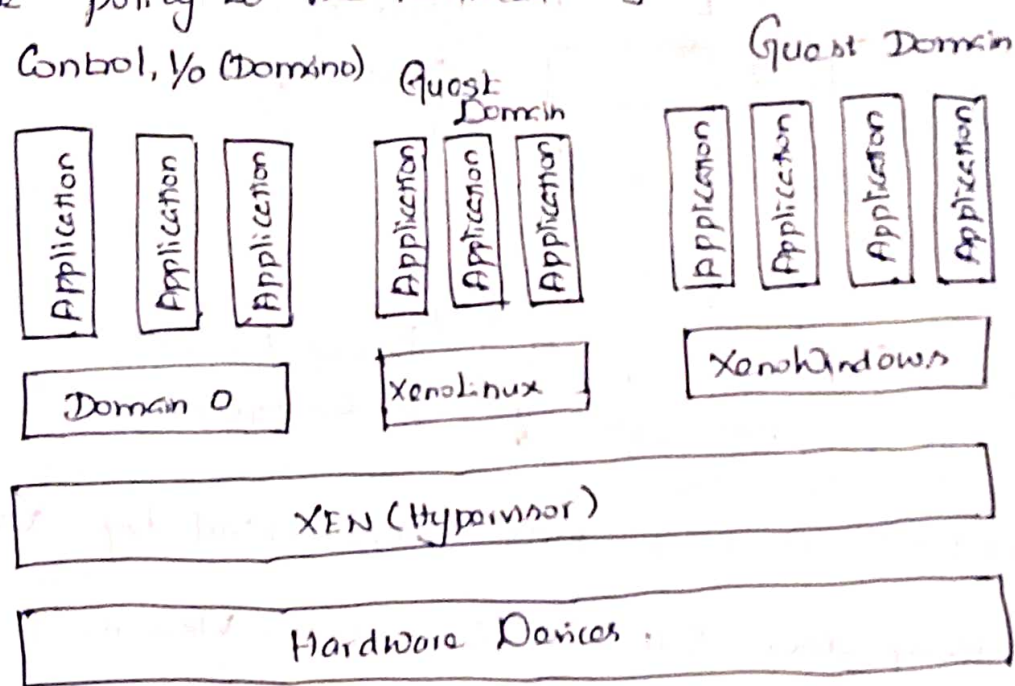 policy to the
Control, I/O (Domain0)
Guest
Domain
Guest Domain
Application
Application
Application
Application
Application
Application
Application
Application
Application
Application
Domain 0
XenoLinux
XenoWindows
XEN (Hypervisor)
Hardware Devices.